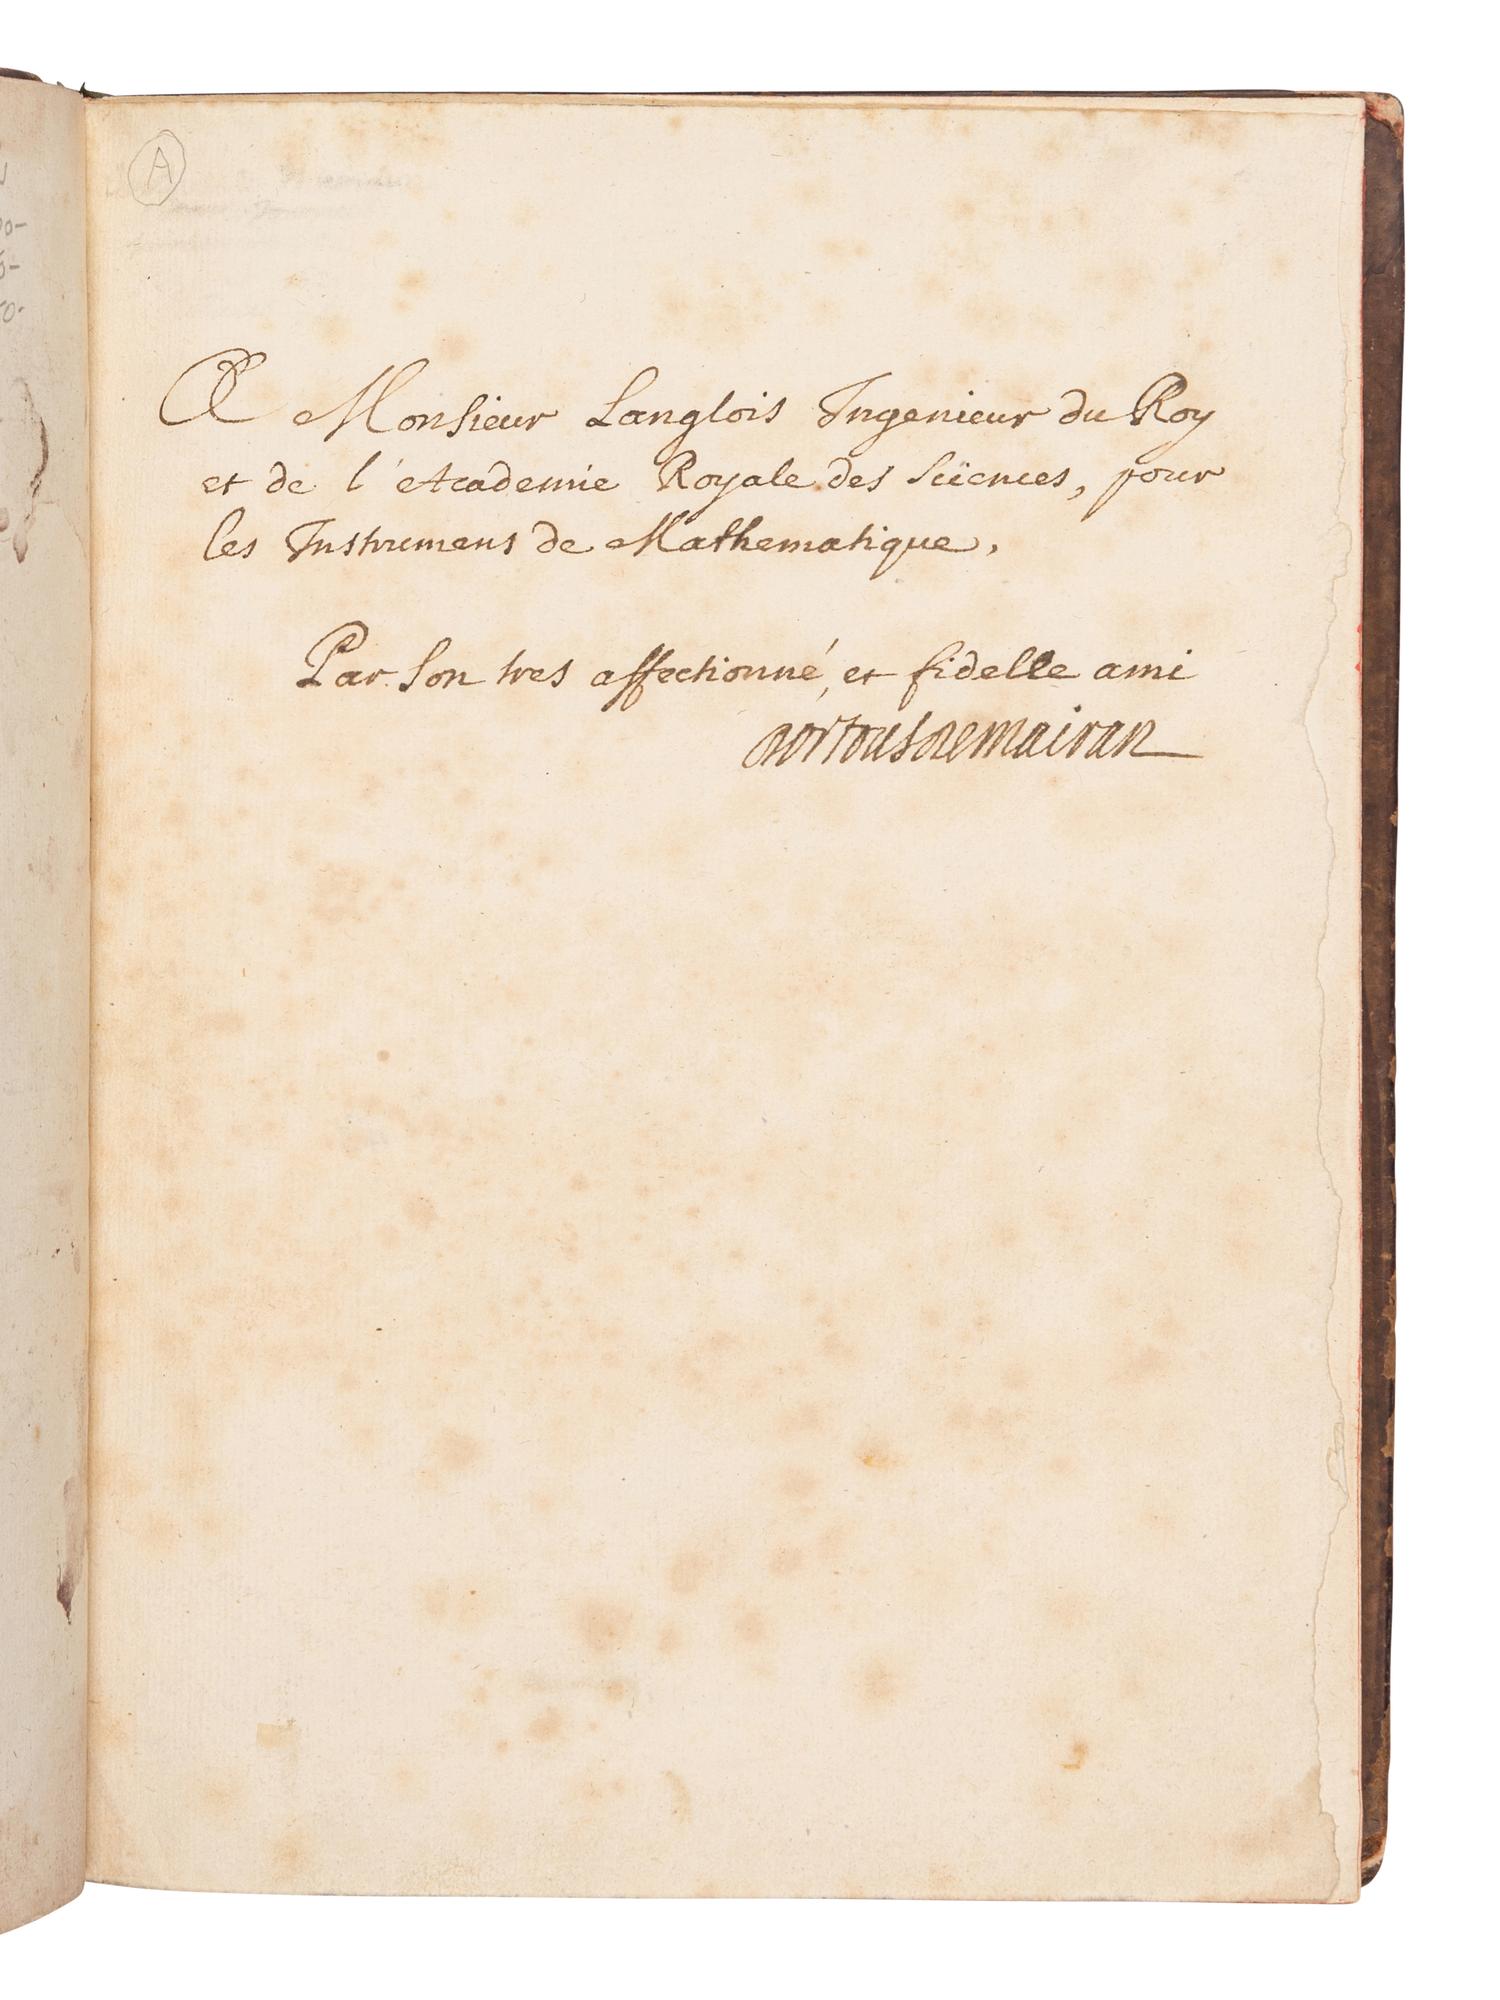 A
A Monsieur Langlois Ingenieur du Roy
et de l'Academie Royale des Sciences, pour
les Instrumens de Mathematique,
Par son tres affectionné, et fidelle ami
Dortous de mairan